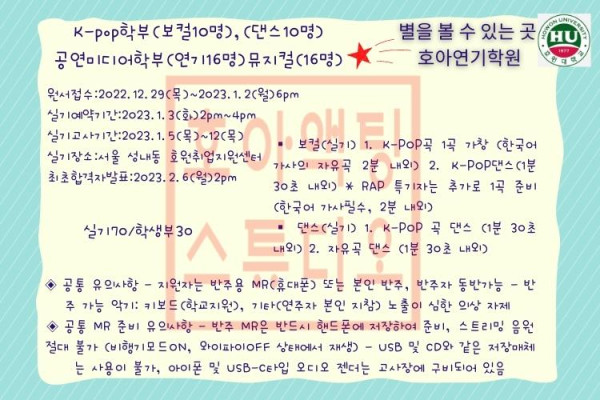 K-pop학부(보컬10명), (댄스10명)
공연미디어학부(연기16명)뮤지컬(16명)
별을 볼 수 있는 곳
호아연기학원
HOWON UNIVERSITY
HU
1977
호원대학교
원서접수:2022.12.29(목)~2023.1.2(월)6pm
실기예약기간:2023.1.3(화)2pm~4pm
실기고사기간:2023.1.5(목)~12(목)
실기장소:서울 성내동 호원취업지원센터
최초합격자발표:2023.2.6(월)2pm
실기70/학생부30
▪ 보컬(실기) 1. K-POP곡 1곡 가창 (한국어
가사의 자유곡 2분 내외) 2. K-POP댄스(1분
30초 내외) * RAP 특기자는 추가로 1곡 준비
(한국어 가사필수, 2분 내외)
▪ 댄스(실기) 1. K-POP 곡 댄스 (1분 30초
내외) 2. 자유곡 댄스 (1분 30초 내외)
호아액팅
스튜디오
◈ 공통 유의사항 - 지원자는 반주용 MR(휴대폰) 또는 본인 반주, 반주자 동반가능 - 반
주 가능 악기: 키보드(학교지원), 기타(연주자 본인 지참) 노출이 심한 의상 자제
◈ 공통 MR 준비 유의사항 - 반주 MR은 반드시 핸드폰에 저장하여 준비, 스트리밍 음원
절대 불가 (비행기모드ON, 와이파이OFF 상태에서 재생) - USB 및 CD와 같은 저장매체
는 사용이 불가, 아이폰 및 USB-C타입 오디오 젠더는 고사장에 구비되어 있음